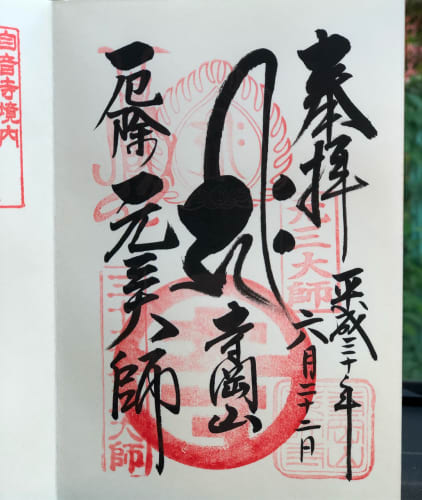 奉拝
元三大師
平成三十年
六月二十二日
寺岡山
厄除 元三大師
音寺境内